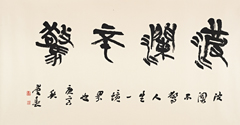 波瀾不驚
波瀾不驚人生一境界也
庚寅秋